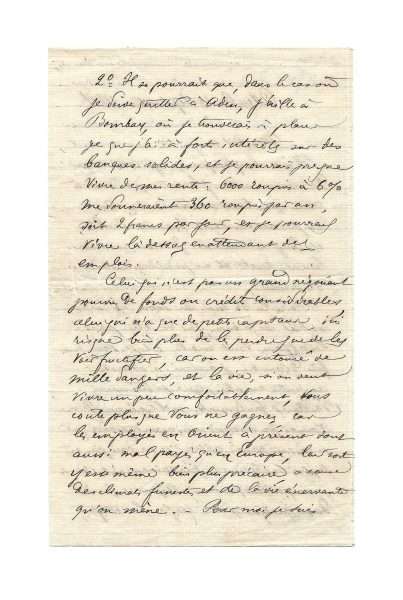 2º Il se pourrait que, dans le cas où
je doive quitter à Aden, j'aille à
Bombay, où je trouverais à placer
ce que j'ai à forts intérêts sur des
banques solides, et je pourrais presque
vivre de mes rentes : 6000 roupies à 6%
me donneraient 360 roupies par an,
soit 2 francs par jour, et je pourrais
vivre là-dessus en attendant des
emplois.
Celui qui n'est pas un grand négociant
pourvu de fonds ou crédits considérables
celui qui n'a que de petits capitaux, ici
risque bien plus de les perdre que de les
voir fructifier, car on est entouré de
mille dangers, et la vie, si on veut
vivre un peu confortablement, vous
coûte plus que vous ne gagnez, car
les employés en Orient à présent sont
aussi mal payés qu'en Europe, leur sort
y est même bien plus précaire à cause
des climats funestes et de la vie énervante
qu'on mène. — Pour moi je suis